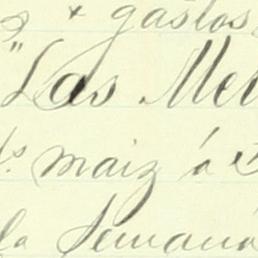 s + gastos
"Las Mel
ds. maiz á
la Semana